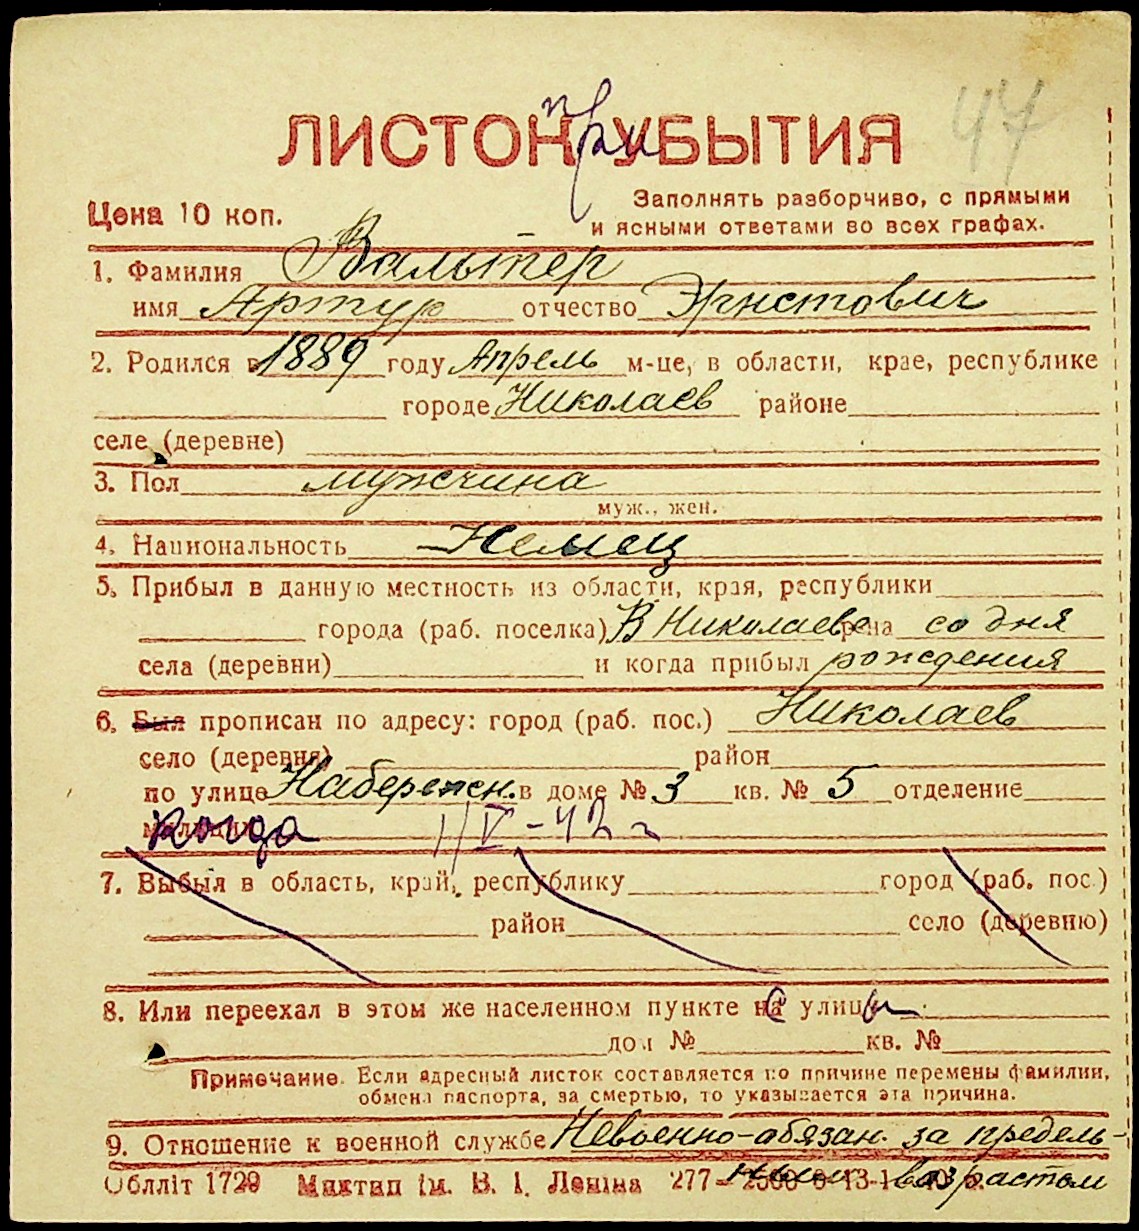 47
ЛИСТОК при УБЫТИЯ
Цена 10 коп.
Заполнять разборчиво, с прямыми
и ясными ответами во всех графах.
1. Фамилия Вальтер
имя Артур отчество Эрнстович
2. Родился в 1889 году Апрель м-це, в области, крае, республике
городе Николаев районе
селе (деревне)
3. Пол мужчина
муж., жен.
4. Национальность Немец
5. Прибыл в данную местность из области, края, республики
города (раб. поселка) В Николаеве со дня
села (деревни) и когда прибыл рождения
6. Был прописан по адресу: город (раб. пос.) Николаев
село (деревня) район
по улице Набережн. в доме № 3 кв. № 5 отделение
милиции когда 1/V-42 г
7. Выбыл в область, край, республику город (раб. пос.)
район село (деревню)
8. Или переехал в этом же населенном пункте на улицы
дом № кв. №
Примечание. Если адресный листок составляется по причине перемены фамилии,
обмена паспорта, за смертью, то указывается эта причина.
9. Отношение к военной службе Невоенно-обязан. за предель-
ным возрастом
Обллiт 1729 iм. В. I. Ленiна 277-2500